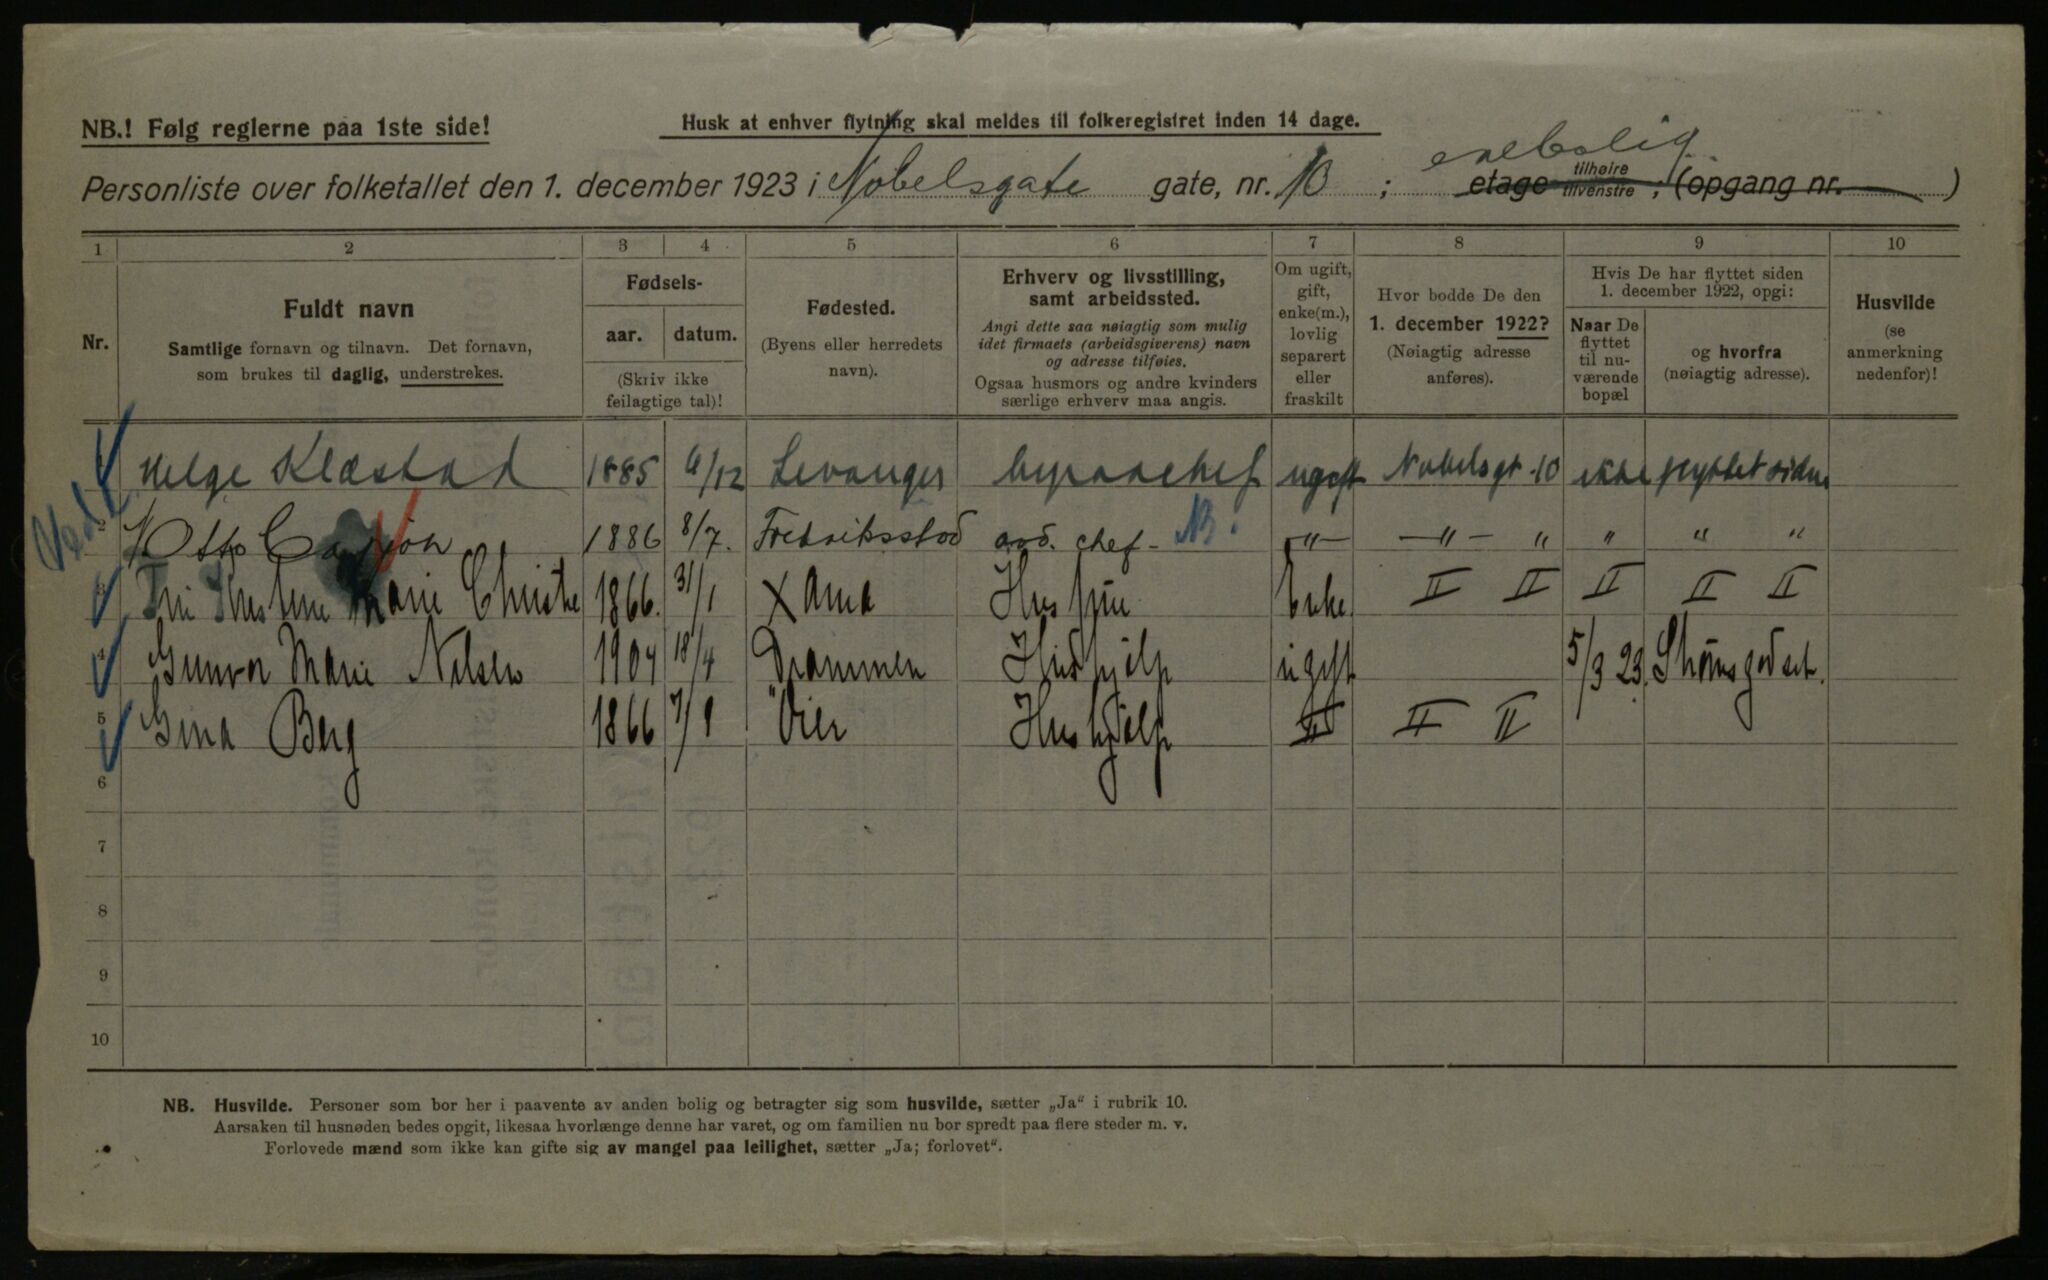 NB.! Følg reglerne paa 1ste side!
Husk at enhver flytning skal meldes til folkeregistret inden 14 dage.
Personliste over folketallet den 1. december 1923 i Nobelsgate gate, nr. 10 ; enebolig etage tilhøire tilvenstre ; (opgang nr. )
1 2 3 4 5 6 7 8 9 10
Nr.
Fuldt navn
Samtlige fornavn og tilnavn. Det fornavn,
som brukes til daglig, understrekes.
Fødsels-
aar. datum.
(Skriv ikke
feilagtige tal)!
Fødested.
(Byens eller herredets
navn).
Erhverv og livsstilling,
samt arbeidssted.
Angi dette saa nøiagtig som mulig
idet firmaets (arbeidsgiverens) navn
og adresse tilføies.
Ogsaa husmors og andre kvinders
særlige erhverv maa angis.
Om ugift,
gift,
enke(m.),
lovlig
separert
eller
fraskilt
Hvor bodde De den
1. december 1922?
(Nøiagtig adresse
anføres).
Hvis De har flyttet siden
1. december 1922, opgi:
Naar De
flyttet
til nu-
værende
bopæl
og hvorfra
(nøiagtig adresse).
Husvilde
(se
anmerkning
nedenfor)!
Helge Klæstad 1885 6/12 Levanger byraachef ugift Nobelsgt. 10 ikke flyttet siden
2 Otto 1886 8/7. Fredriksstad avd. chef - NB. -"- -"- " " " "
3 Marie Christie 1866. 31/1 Husfrue Enke. II II II II II
4 Gunvor Marie Nilsen 1904 18/4 Drammen Hushjelp ugift 5/3 23. Strømsgodset.
5 Gina Berg 1866 7/9 Øier Hushjelp II II II
6
7
8
9
10
NB. Husvilde. Personer som bor her i paavente av anden bolig og betragter sig som husvilde, sætter „Ja“ i rubrik 10.
Aarsaken til husnøden bedes opgit, likesaa hvorlænge denne har varet, og om familien nu bor spredt paa flere steder m. v.
Forlovede mænd som ikke kan gifte sig av mangel paa leilighet, sætter „Ja; forlovet“.